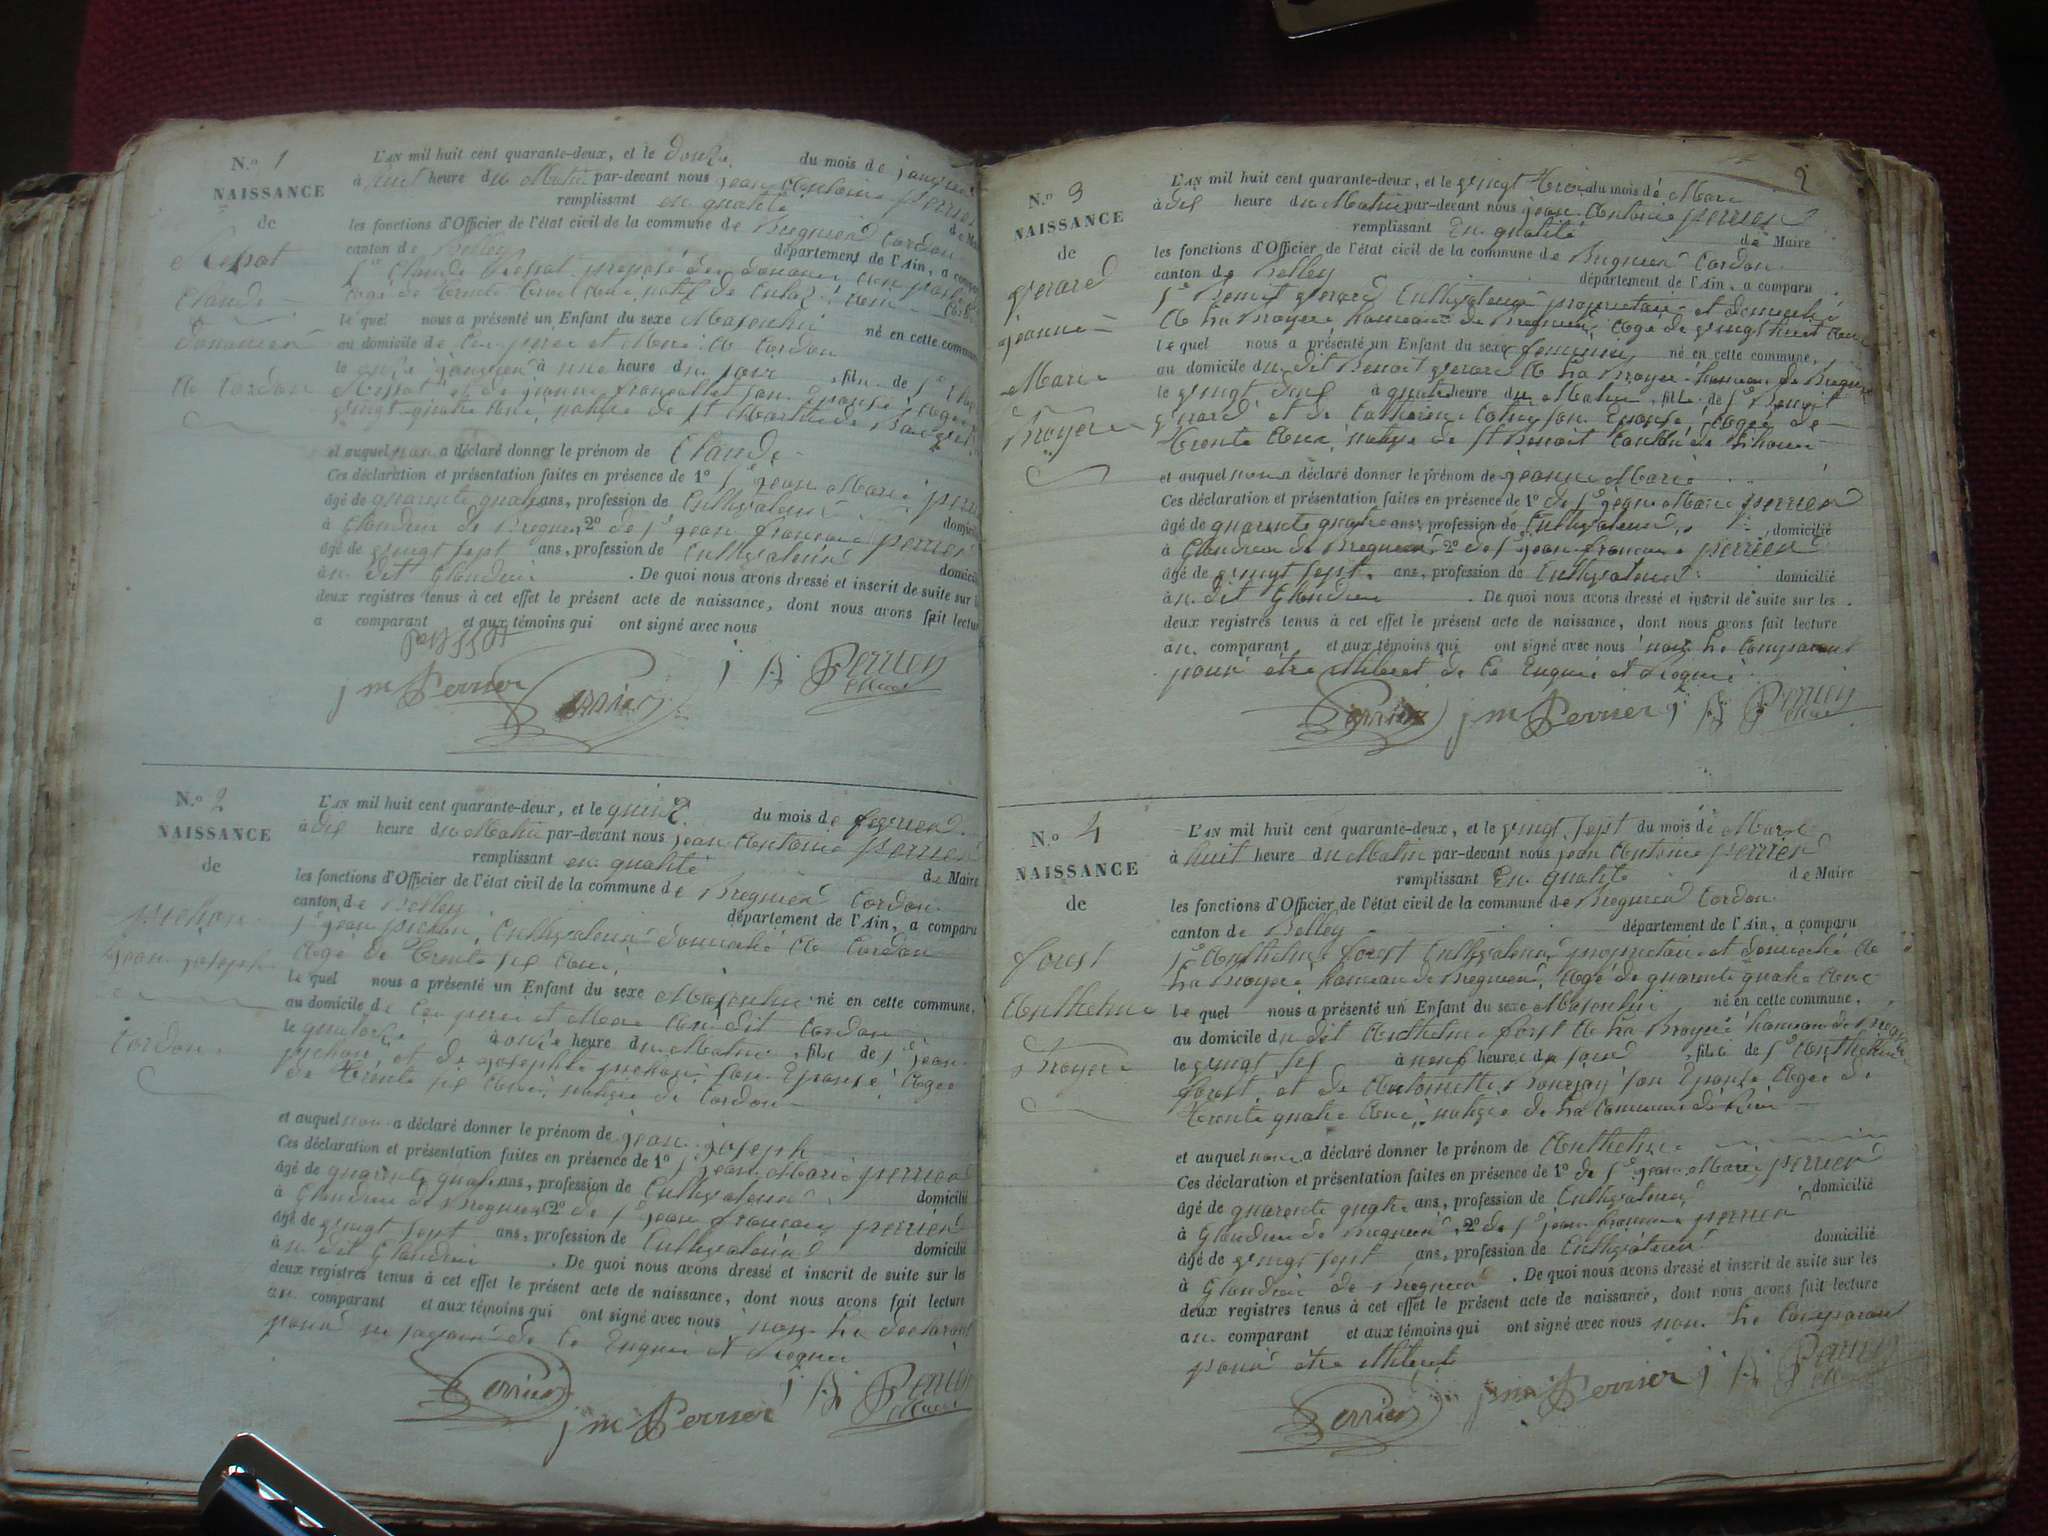 N.º 1
NAISSANCE
de
Claude
Douanier
a Cordon
L'AN mil huit cent quarante-deux, et le douze du mois de janvier
à huit heure du Matin par-devant nous jean Antoine perrier
remplissant en qualité de Mai
les fonctions d'Officier de l'état civil de la commune de Bregnier Cordon
canton de Belley département de l'Ain, a compa
le quel nous a présenté un Enfant du sexe Masculin né en cette commune
au domicile de Ces perre et Mere a Cordon
le onze janvier à une heure du soir, fils de Sr
et auquel nous a déclaré donner le prénom de Claude
Ces déclaration et présentation faites en présence de 1º Sr jean Marie perrier
âgé de quarente quatre ans, profession de Cultivateur
à Glandieu de Bregnier 2º de Sr jean francois perrier domicilié
âgé de vingt sept ans, profession de Cultivateur domicilié
à u dit Glandieu. De quoi nous avons dressé et inscrit de suite sur l
deux registres tenus à cet effet le présent acte de naissance, dont nous avons fait lectur
a comparant et aux témoins qui ont signé avec nous
j m Perrier Perrier j A Perrier
Maire
N.º 2
NAISSANCE
de
pichon
jean joseph
Cordon
L'AN mil huit cent quarante-deux, et le quinze du mois de fevrier
à dix heure du Matin par-devant nous jean Antoine perrier
remplissant en qualité de Maire
les fonctions d'Officier de l'état civil de la commune de Bregnier Cordon
canton de Belley département de l'Ain, a comparu
Sr jean pichon, Cultivateur domicilié a Cordon
Agé de trente six Ans,
le quel nous a présenté un Enfant du sexe Masculin né en cette commune,
au domicile de Ces perre et Mere Au dit Cordon
le quatorze à onze heure du Matin, fils de Sr jean
pichon, et de josephte pichon son Epouse Agee
de trente six Ans, native de Cordon
et auquel nous a déclaré donner le prénom de jean joseph
Ces déclaration et présentation faites en présence de 1º Sr jean Marie perrier
âgé de quarente quatre ans, profession de Cultivateur domicilié
à Glandieu de Bregnier 2º de Sr jean francois perrier
âgé de vingt sept ans, profession de Cultivateur domicilié
à u dit Glandieu. De quoi nous avons dressé et inscrit de suite sur les
deux registres tenus à cet effet le présent acte de naissance, dont nous avons fait lecture
au comparant et aux témoins qui ont signé avec nous non le declarant
pour ne savoir de Ce Enquis et Requis
Perrier j m Perrier j A Perrier
Maire
2
N.º 3
NAISSANCE
de
gerard
jeanne
Marie
Broyere
L'AN mil huit cent quarante-deux, et le vingt trois du mois de Mars
à dix heure du Matin par-devant nous jean Antoine perrier
remplissant En qualité de Maire
les fonctions d'Officier de l'état civil de la commune de Bregnier Cordon
canton de Belley département de l'Ain, a comparu
Sr Benoit gerard Cultivateur proprietaire et domicilié
A La Broyere hameau de Bregnier, Agé de vingt huit Ans
le quel nous a présenté un Enfant du sexe feminin né en cette commune,
au domicile du dit Benoit gerard A La Broyer hameau de Bregnier
le vingt deux à quatre heure du Matin, fille de Sr Benoit
gerard et de Catherine son Epouse Agee de
trente Ans native de St Benoit
et auquel nous a déclaré donner le prénom de jeanne Marie
Ces déclaration et présentation faites en présence de 1º de Sr jean Marie perrier
âgé de quarente quatre ans, profession de Cultivateur, domicilié
à Glandieu de Bregnier 2º de Sr jean francois perrier
âgé de vingt sept. ans, profession de Cultivateur domicilié
à u dit Glandieu. De quoi nous avons dressé et inscrit de suite sur les
deux registres tenus à cet effet le présent acte de naissance, dont nous avons fait lecture
au comparant et aux témoins qui ont signé avec nous non Le Comparant
pour etre illiteret de Ce Enquis et Requis
Perrier j m Perrier j A Perrier
Maire
N.º 4
NAISSANCE
de
forest
Anthelme
Broyere
L'AN mil huit cent quarante-deux, et le vingt sept du mois de Mars
à huit heure du Matin par-devant nous jean Antoine perrier
remplissant En qualité de Maire
les fonctions d'Officier de l'état civil de la commune de Bregnier Cordon
canton de Belley département de l'Ain, a comparu
Sr Anthelme forest Cultivateur proprietaire et domicilié A
La Broyere hameau de Bregnier, Agé de quarente quatre Ans
le quel nous a présenté un Enfant du sexe Masculin né en cette commune,
au domicile du dit Anthelme forest A La Broyere hameau de Bregnier
le vingt six à neuf heure du soir, fils de Sr Anthelme
forest, et de Antoinette son Epouse Agee de
trente quatre Ans, native de La Commune de
et auquel nous a déclaré donner le prénom de Anthelme
Ces déclaration et présentation faites en présence de 1º de Sr jean Marie perrier
âgé de quarente quatre ans, profession de Cultivateur, domicilié
à Glandieu de Bregnier, 2º de Sr jean francois perrier
âgé de vingt sept ans, profession de Cultivateur domicilié
à Glandieu de Bregnier. De quoi nous avons dressé et inscrit de suite sur les
deux registres tenus à cet effet le présent acte de naissance, dont nous avons fait lecture
au comparant et aux témoins qui ont signé avec nous non Le Comparant
pour etre illiteret
Perrier j m Perrier j A Perrier
Maire